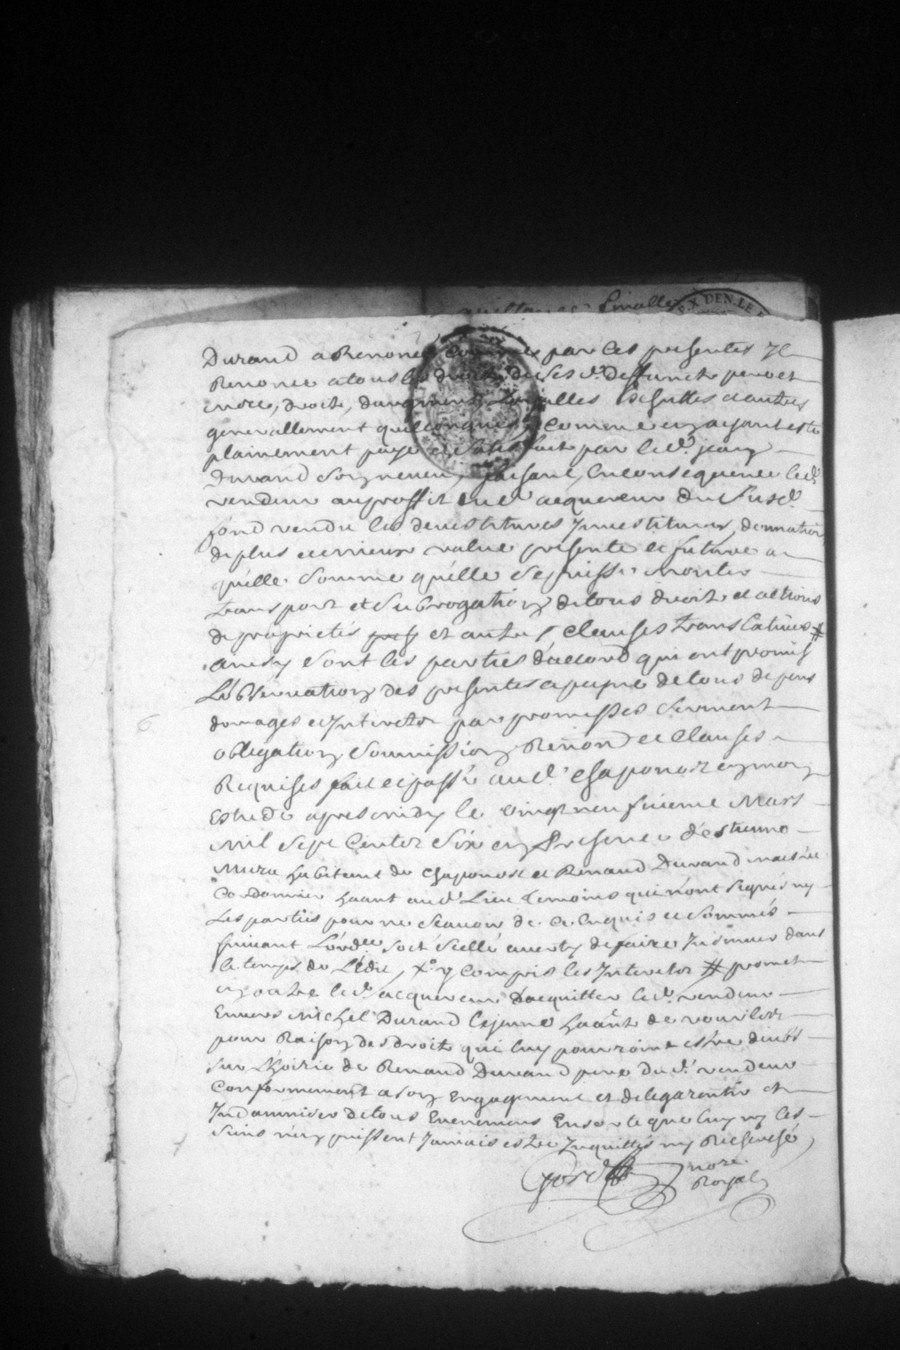 quittances finalle
X DEN. LE F
Durand a Renoncé comme par ces presentes Il
Renonce a tous les droits de ses d. deffuncts pere et
mere, droits, augments, et autres
generallement quelconques, comme en ayant esté
plainement payé et satisfait par led. jean
Durand Soigneur, faisant, En consequence led.
vendeur au proffit dud. acquereur du susd.
fond vendu les devestitures Investitures, donnation
de plus ou mieux value presente et future a
quelle somme quelle se puisse monter
transport et subrogation de tous droits et actions
de proprietés et autres clauses translatives #
ainsy sont les parties d'accord qui ont promis
Lobservation des presentes a peyne de tous depens
domages et Interets par promesses serment
obligation soumission Renon et clauses
Requises fait et passé aud. chaponost en mon
Estude apres midy le vingt neufvieme Mars
mil sept Cents Six en Presence d'estienne
habitant de Chaponost et Renaud Durand maitre
Cordonnier haant aud. Lieu temoins qui n'ont signé ny
Les parties pour ne scavoir de ce Enquis et sommés
suivant Lord.ce soit scellé avertis de faire Insinuer dans
le temps de L'édit, y Compris les Interets # promet
en outre led. acquereur d'acquitter led. vendeur
Envers Michel Durand Lejeune haant de vourles
pour Raison des droits qui luy pourroint estre deubs
sur Lhoirie de Renaud Durand pere dud. vendeur
Conformement a son Engagement et de le garentir et
Indamniser de tous Evenemens Ensorte que luy ny les
siens n'en puissent Jamais estre Inquittés ny Recherché
nore.
Royal
6